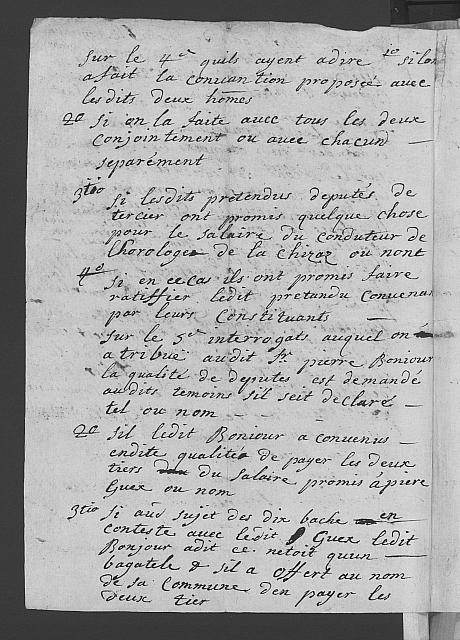 Sur le 4e quils ayent a dire 1o si lon
a fait la convantion proposée avec
lesdits deux hômes
2o Si on la faite avec tous les deux
conjointement ou avec chacun
separément
3tio Si lesdits prétendus députés de
tercier ont promis quelque chose
pour le salaire du conduteur de
lhorologe de la Chizaz ou nont
4o Si en ce cas ils ont promis faire
ratiffier ledit pretandu convenus
par leurs Constituants
Sur le 5e interrogats auquel on
atribue audit Sr pierre Bonjour
la qualité de deputés est demandé
audits temoins sil seit declaré
tel ou nom
2o Sil ledit Bonjour a convenus
endite qualité de payer les deux
tiers du salaire promis à piere
Guex ou nom
3tio Si aus sujet des dix bache en
conteste avec ledit Guex ledit
Bonjour adit ce netoit quun
bagatele & sil a offert au nom
de sa Commune den payer les
deux tier